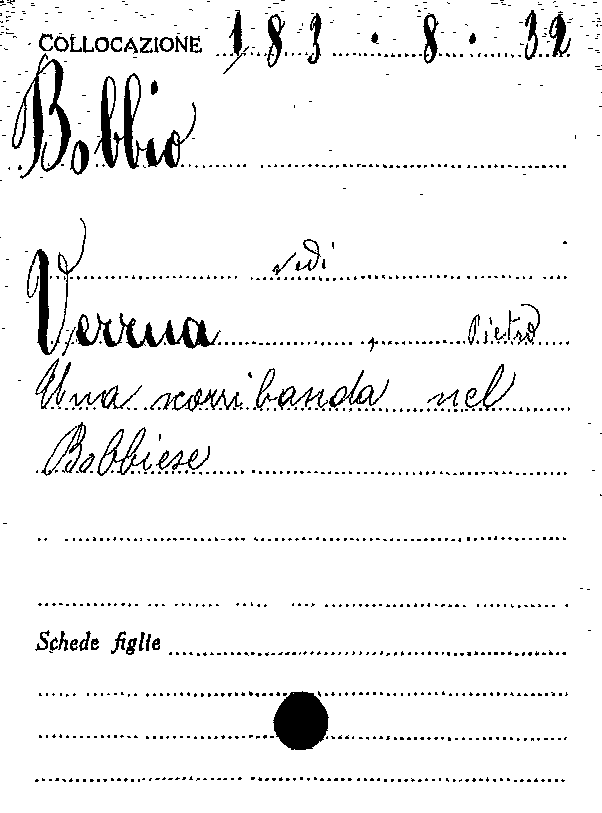 COLLOCAZIONE 183.8.32
Bobbio
vedi
Verrua, Pietro
Una scorribanda nel
Bobbiese
Schede figlie